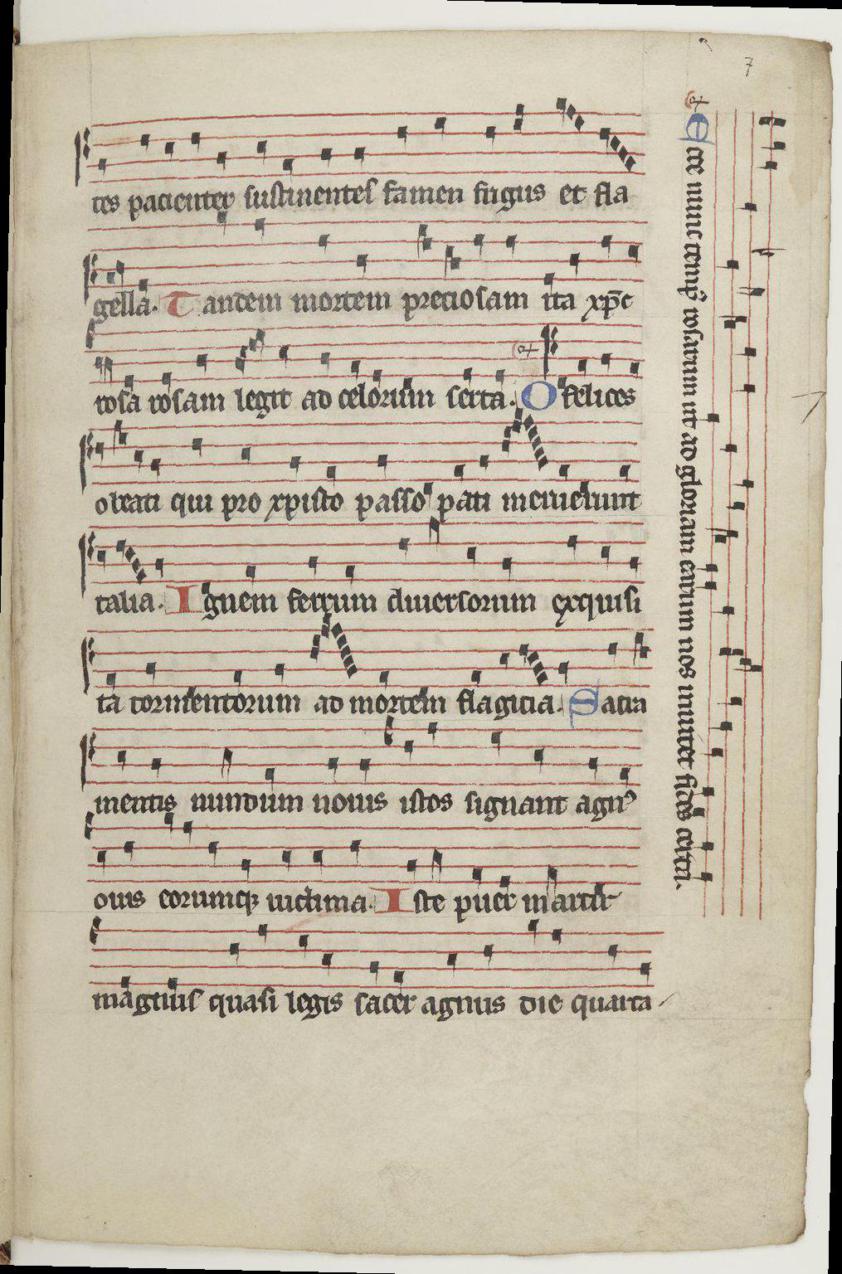 7
tes pacienter sustinentes famen frigus et fla
gella. Tandem mortem preciosam ita xp̄c
rosa rosam legit ad celorum serta. O felices
o beati qui pro xpisto passo pati meruerunt
talia. Ignem ferrum diuersorum exquisi
ta tormentorum ad mortem flagicia. Sacra
mentis mundum nouis istos signant agnꝰ
ouis eorumqꝫ uictima. Iste puer martir
magnus quasi legis sacer agnus die quarta
Ecce nunc tempꝰ rosarum ut ad gloriam earum nos inuitet